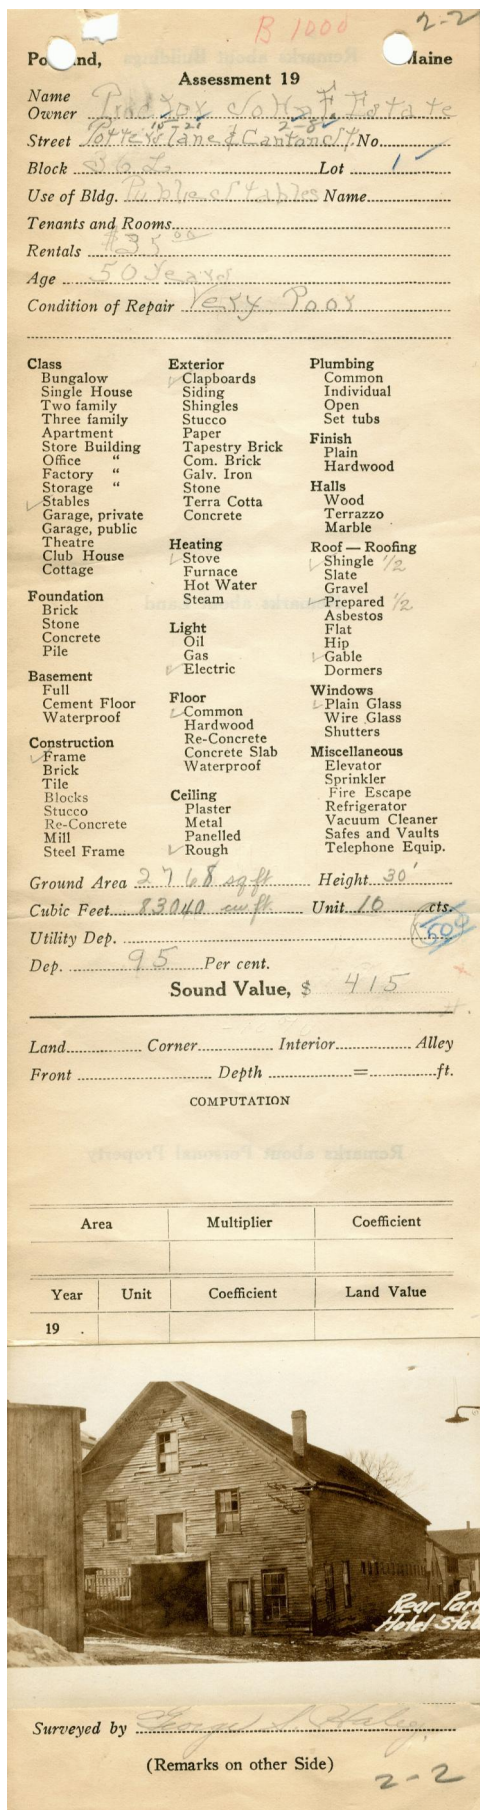 B 1000
2-2
Po    nd,    Maine
Assessment 19
Name
Owner Proctor John F Estate
15-21 2-8
Street Potters lane & Canton St. No.
Block 36L Lot 1
Use of Bldg. Public Stables Name
Tenants and Rooms
Rentals #35 00
Age 50 years
Condition of Repair Very Poor
Class
Bungalow
Single House
Two family
Three family
Apartment
Store Building
Office "
Factory "
Storage "
Stables
Garage, private
Garage, public
Theatre
Club House
Cottage
Foundation
Brick
Stone
Concrete
Pile
Basement
Full
Cement Floor
Waterproof
Construction
Frame
Brick
Tile
Blocks
Stucco
Re-Concrete
Mill
Steel Frame
Exterior
Clapboards
Siding
Shingles
Stucco
Paper
Tapestry Brick
Com. Brick
Galv. Iron
Stone
Terra Cotta
Concrete
Heating
Stove
Furnace
Hot Water
Steam
Light
Oil
Gas
Electric
Floor
Common
Hardwood
Re-Concrete
Concrete Slab
Waterproof
Ceiling
Plaster
Metal
Panelled
Rough
Plumbing
Common
Individual
Open
Set tubs
Finish
Plain
Hardwood
Halls
Wood
Terrazzo
Marble
Roof — Roofing
Shingle 1/2
Slate
Gravel
Prepared 1/2
Asbestos
Flat
Hip
Gable
Dormers
Windows
Plain Glass
Wire Glass
Shutters
Miscellaneous
Elevator
Sprinkler
Fire Escape
Refrigerator
Vacuum Cleaner
Safes and Vaults
Telephone Equip.
Ground Area 2768 sq ft Height 30'
Cubic Feet 83040 cu ft. Unit 10 cts.
Utility Dep.
Dep. 95 Per cent.
Sound Value, $ 415
Land Corner Interior Alley
Front Depth = ft.
COMPUTATION
Area Multiplier Coefficient
Year Unit Coefficient Land Value
19 .
Rear Part
Hotel Sta
Surveyed by George S. Haley
(Remarks on other Side)
2-2